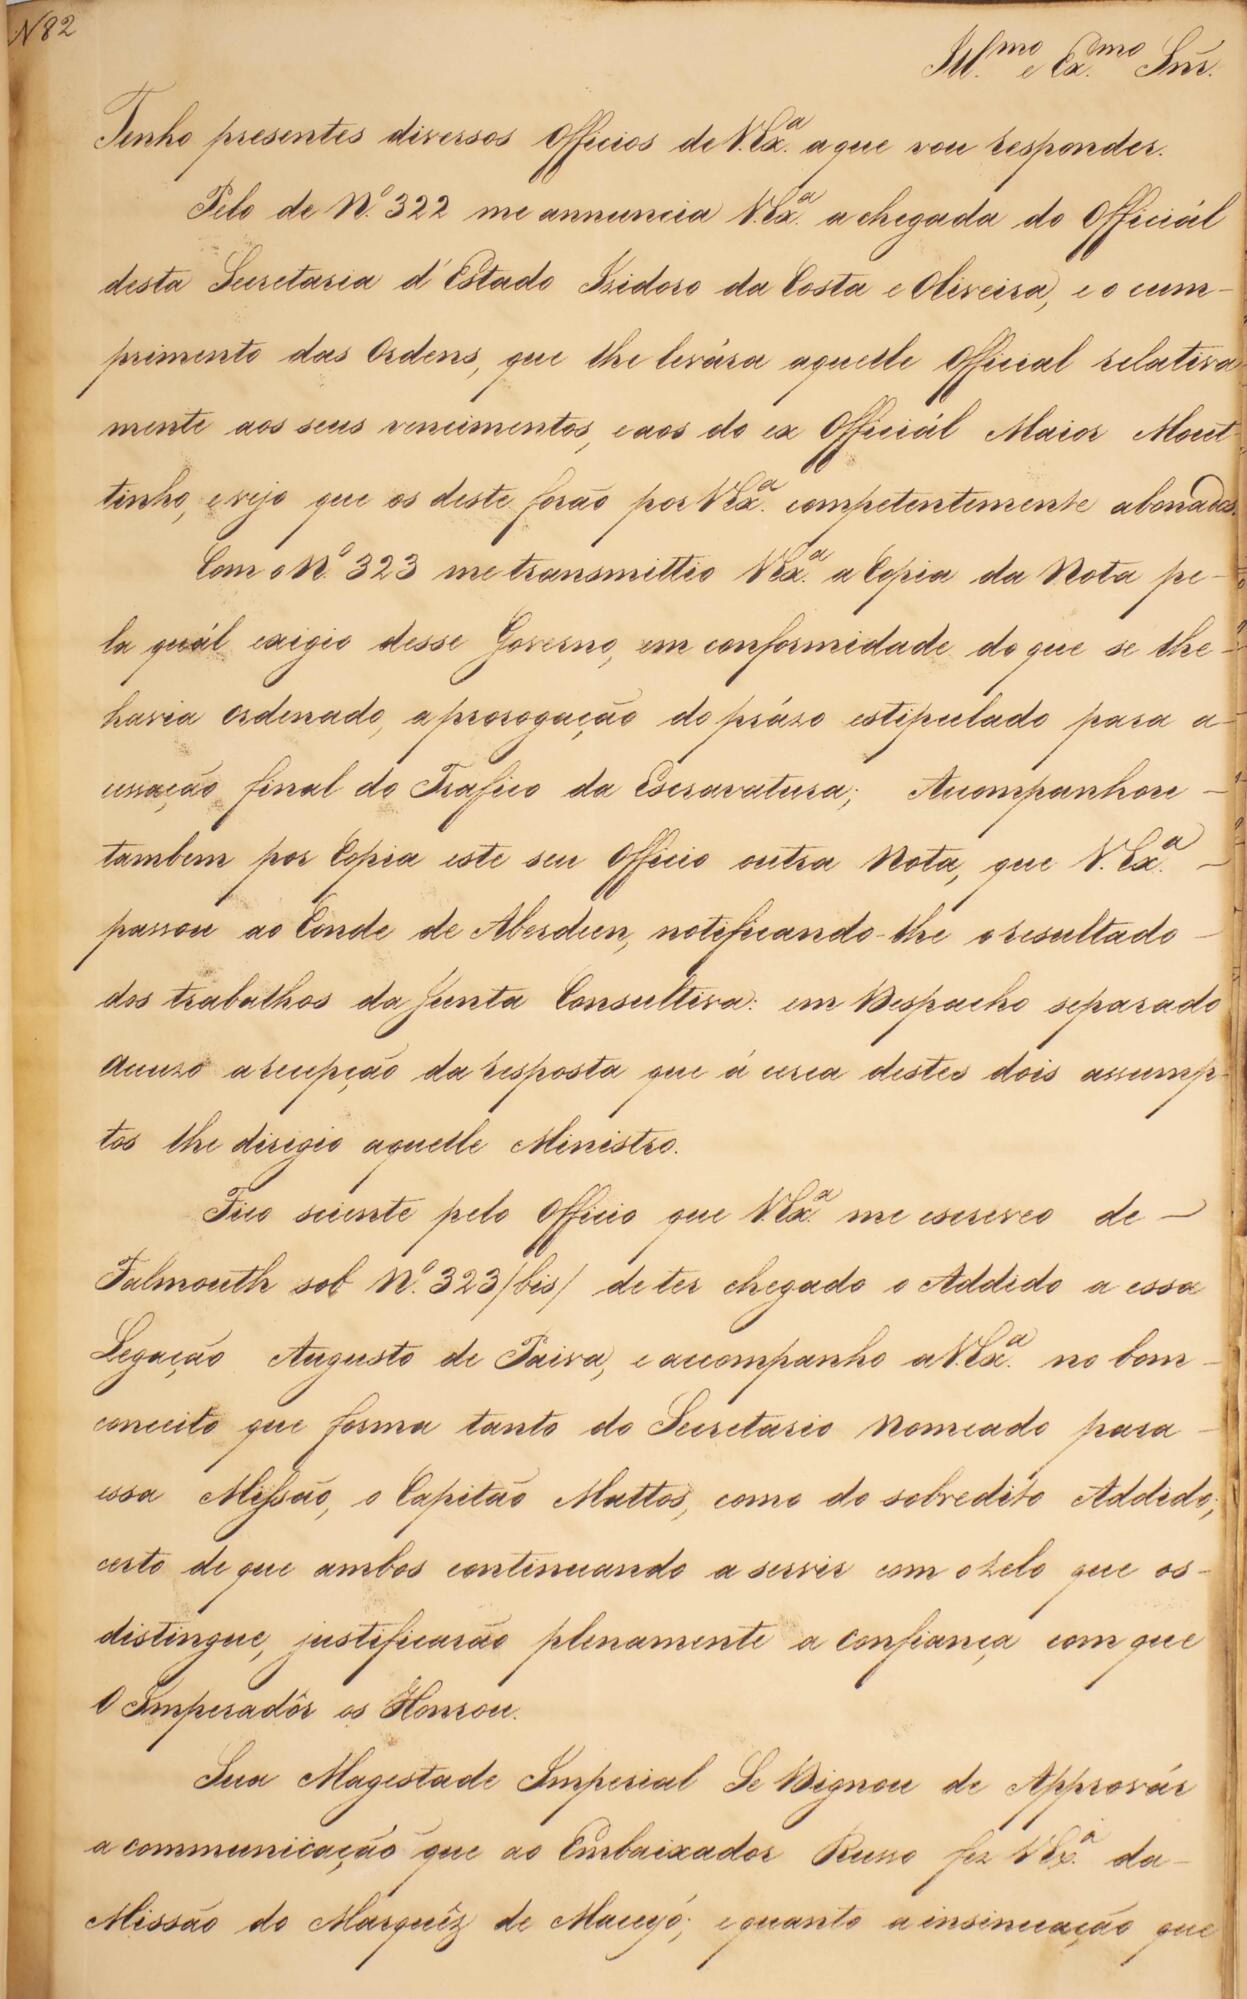 N 82
Ill.mo e Ex.mo Snr.
Tenho presentes diversos Officios de V. Ex.a a que vou responder.
Pelo de N.o 322 me annuncia V. Ex.a a chegada do Officiál
desta Secretaria d'Estado Izidoro da Costa e Oliveira, e o cum-
primento das Ordens, que lhe levára aquelle Official relativa
mente aos seus vencimentos, e aos do ex Officiál Maior Mout
tinho, e vejo que os deste forão por V. Ex.a competentemente abonados.
Com o N.o 323 me transmittio V. Ex.a a Copia da Nota pe-
la quál exigio desse Governo, em conformidade do que se lhe-
havia Ordenado, a prorogação do prázo estipulado para a-
cessação final do Trafico da Escravatura; Acompanhou-
tambem por Copia este seu Officio outra Nota, que V. Ex.a -
passou ao Conde de Aberdeen, notificando-lhe o resultado -
dos trabalhos da Junta Consultiva: em Despacho separado
Accuzo a recepção da resposta que á cerca destes dois assump-
tos lhe dirigio aquelle Ministro.
Fico sciente pelo Officio que V. Ex.a me escreveo de -
Falmouth sob N.o 323/bis/ de ter chegado o Addido a essa
Legação Augusto de Paiva, e acompanho a V. Ex.a no bom-
conceito que forma tanto do Secretario Nomeado para -
essa Missão, o Capitão Mattos, como do sobredito Addido;
certo de que ambos continuando a servir com o zelo que os-
distingue, justificarão plenamente a Confiança com que
O Imperadôr os Honrou.
Sua Magestade Imperial Se Dignou de Approvár
a communicação que ao Embaixador Russo fez V. Ex.a da-
Missão do Marquêz de Maceyó; e quanto a insinuação que